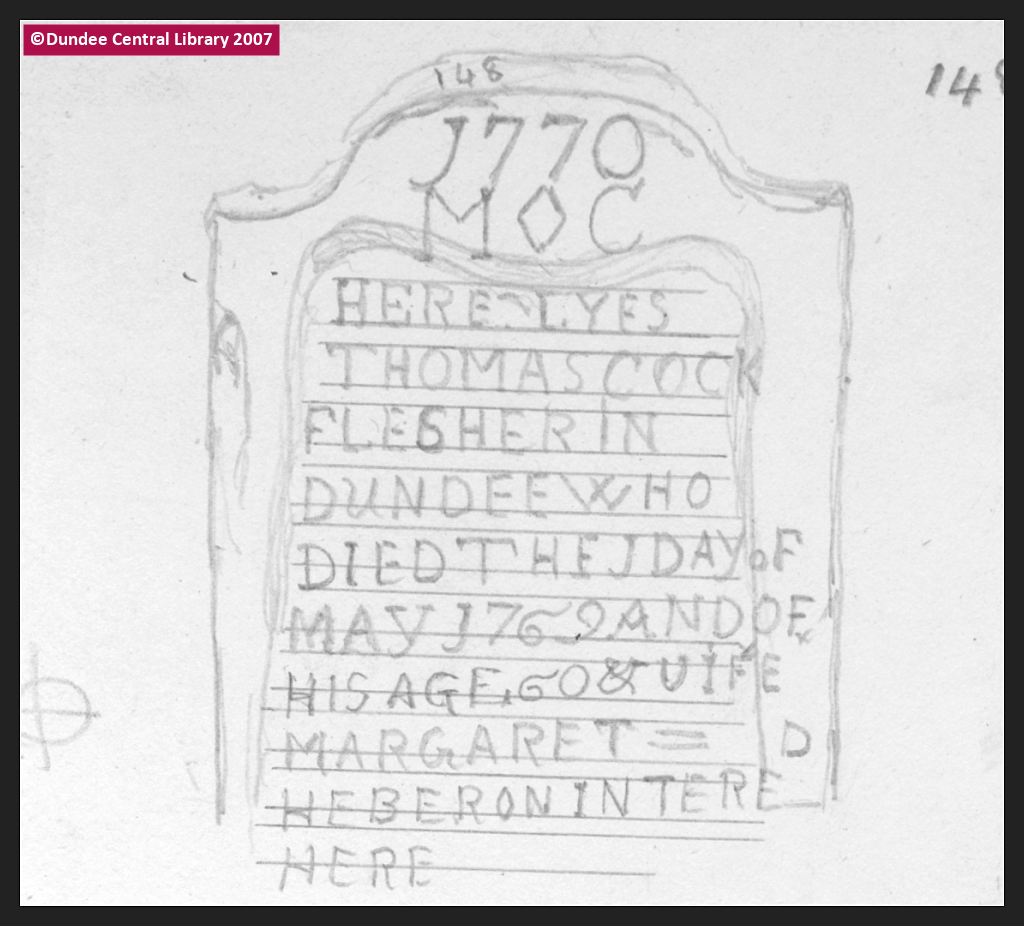 ©Dundee Central Library 2007
148
148
J770
M ◇ C
HERE LYES
THOMAS COCK
FLESHER IN
DUNDEE WHO
DIED THE J DAY oF
MAY J769 AND OF
HIS AGE 60 & UIFE
MARGARET = D
HEBERON INTERE
HERE